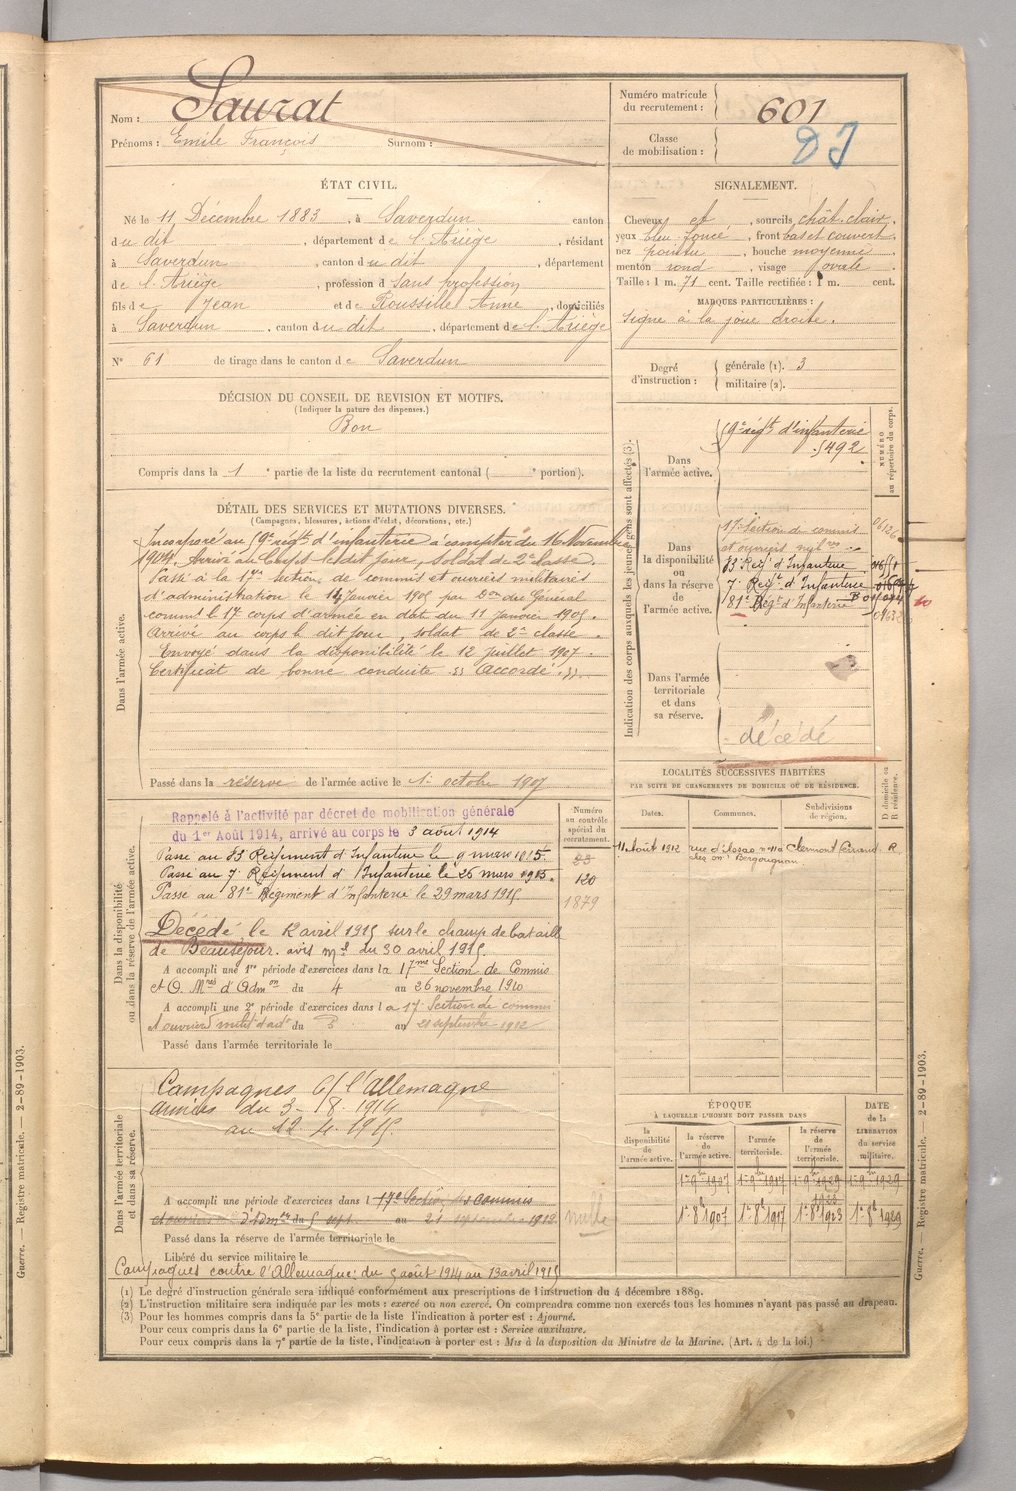 Nom : Saurat
Prénoms : Emile François Surnom :
Numéro matricule du recrutement : 601
Classe de mobilisation :
ÉTAT CIVIL.
Né le 11 Décembre 1883, à Saverdun canton
du dit, département de l'Ariège, résidant
à Saverdun, canton du dit, département
de l'Ariège, profession d Sans profession
fils de Jean et de Roussille Anne, domiciliés
à Saverdun, canton du dit, département de l'Ariège
N° 61 de tirage dans le canton de Saverdun
SIGNALEMENT.
Cheveux et, sourcils chât. clair.
yeux bleu foncé, front bas et couvert
nez pointu, bouche moyenne
menton rond, visage ovale
Taille : 1 m. 71 cent. Taille rectifiée : 1 m. cent.
MARQUES PARTICULIÈRES :
Signe à la joue droite.
Degré d'instruction : générale (1). 3
militaire (2).
DÉCISION DU CONSEIL DE REVISION ET MOTIFS.
(Indiquer la nature des dispenses.)
Bon
Compris dans la 1e partie de la liste du recrutement cantonal ( e portion).
DÉTAIL DES SERVICES ET MUTATIONS DIVERSES.
(Campagnes, blessures, actions d'éclat, décorations, etc.)
Dans l'armée active.
Incorporé au 59e régt d'infanterie à compter du 16 Novembre
1904. Arrivé au Corps ledit jour, soldat de 2e classe.
Passé à la 17e section de commis et ouvriers militaires
d'administration le 14 Janvier 1905 par Don du Général
commt le 17 corps d'armée en dat. du 11 janvier 1905.
Arrivé au corps le dit jour, soldat de 2e classe
Envoyé dans la disponibilité le 12 juillet 1907.
Certificat de bonne conduite "Accordé".
Passé dans la réserve de l'armée active le 1er octobre 1907
Indication des corps auxquels les jeunes gens sont affectés (3).
NUMÉRO au répertoire du corps.
Dans l'armée active.
59e régt d'infanterie
5492
Dans la disponibilité ou dans la réserve de l'armée active.
17e Section de commis
et ouvriers
83 Reigt d'Infanterie
7e Reigt d'Infanterie
81e Regt d'Infanterie
Dans l'armée territoriale et dans sa réserve.
décédé
Dans la disponibilité ou dans la réserve de l'armée active.
Numéro au contrôle spécial du recrutement.
Rappelé à l'activité par décret de mobilisation générale
du 1er Août 1914, arrivé au corps le 3 août 1914
Passé au 83 Régiment d'Infanterie le 9 mars 1915.
Passe au 7e Régiment d'Infanterie le 26 mars 1915. 120
Passé au 81e Régiment d'Infanterie le 29 mars 1915. 1879
Décédé le 12 avril 1915 sur le champ de bataille
de Beauséjour. avis ml du 30 avril 1915.
A accompli une 1re période d'exercices dans la 17me Section de Commis
et O. Mres d'Admon du 4 au 26 novembre 1910
A accompli une 2e période d'exercices dans la 17e Section de commis
et ouvriers milit. d'adt du 5 au 21 septembre 1912
Passé dans l'armée territoriale le
LOCALITÉS SUCCESSIVES HABITÉES
PAR SUITE DE CHANGEMENTS DE DOMICILE OU DE RÉSIDENCE.
D domicile ou R résidence.
Dates. Communes. Subdivisions de région.
11 Août 1912 rue d'Assas n° 11a Clermont Ferrand R
chez Mr Bergougnon
Dans l'armée territoriale et dans sa réserve.
Campagnes C/ l'Allemagne
Armées du 3-8-1914
au 12.4.1915.
A accompli une période d'exercices dans l 17e Section des commis
et ouvriers d'Admon du 5 septe au 21 septembre 1912 nulle
Passé dans la réserve de l'armée territoriale le
Libéré du service militaire le
Campagnes contre l'Allemagne : du 3 août 1914 au 13 avril 1915
ÉPOQUE
À LAQUELLE L'HOMME DOIT PASSER DANS
DATE de la LIBÉRATION du service militaire.
la disponibilité de l'armée active. la réserve de l'armée active. l'armée territoriale. la réserve de l'armée territoriale.
1er 9bre 1907 1er 9bre 1917 1er 9bre 1929
1er 8b 1907 1er 8b 1917 1er 8b 1923 1er 8b 1929
(1) Le degré d'instruction générale sera indiqué conformément aux prescriptions de l'instruction du 4 décembre 1889.
(2) L'instruction militaire sera indiquée par les mots : exercé ou non exercé. On comprendra comme non exercés tous les hommes n'ayant pas passé au drapeau.
(3) Pour les hommes compris dans la 5e partie de la liste l'indication à porter est : Ajourné.
Pour ceux compris dans la 6e partie de la liste, l'indication à porter est : Service auxiliaire.
Pour ceux compris dans la 7e partie de la liste, l'indication à porter est : Mis à la disposition du Ministre de la Marine. (Art. 4 de la loi.)
Guerre. — Registre matricule. — 2-89-1903.
Guerre. — Registre matricule. — 2-89-1903.